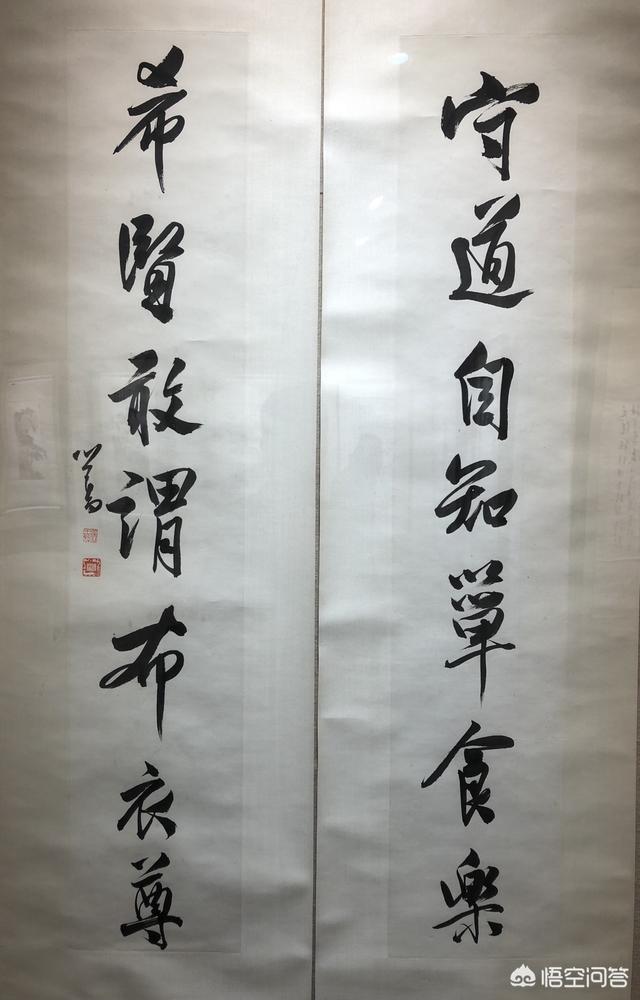 守道自知箪食樂
希賢敢謂布衣尊
心畬
悟空问答